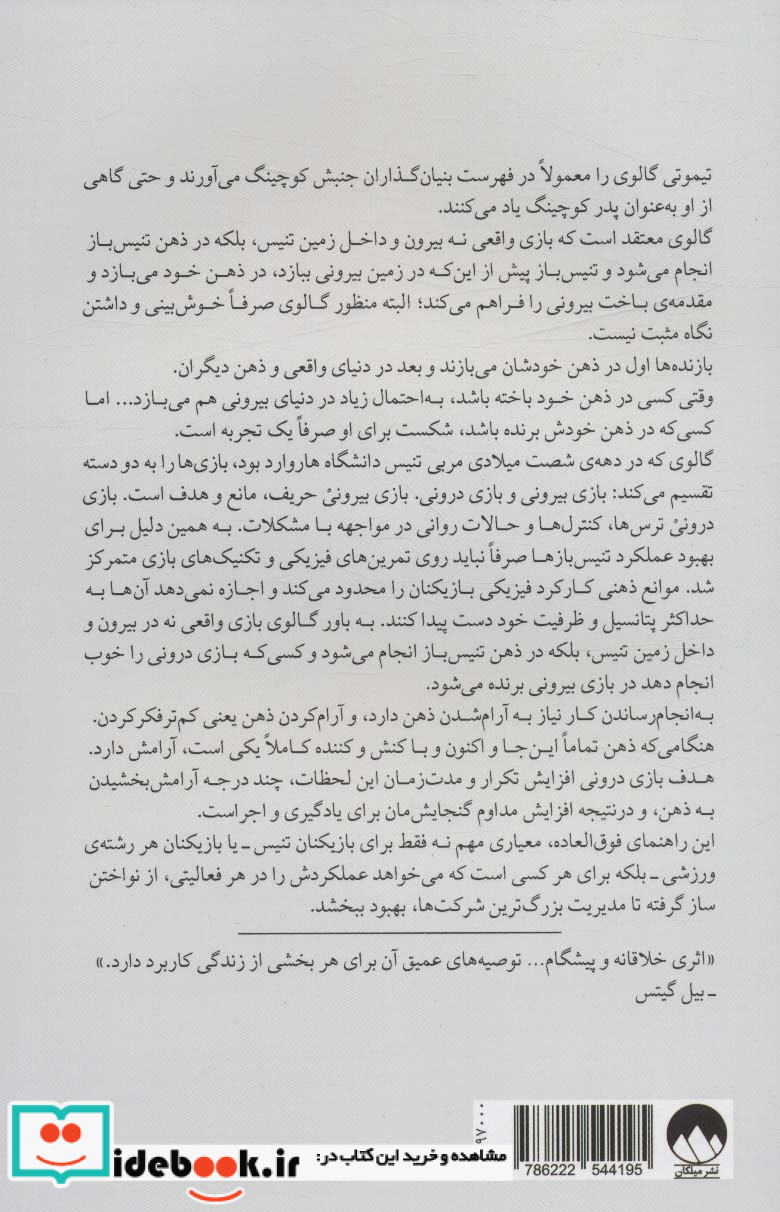 تیموتی گالوی را معمولاً در فهرست بنیان‌گذاران جنبش کوچینگ می‌آورند و حتی گاهی
از او به‌عنوان پدر کوچینگ یاد می‌کنند.
گالوی معتقد است که بازی واقعی نه بیرون و داخل زمین تنیس، بلکه در ذهن تنیس‌باز
انجام می‌شود و تنیس‌باز پیش از این‌که در زمین بیرونی ببازد، در ذهن خود می‌بازد و
مقدمه‌ی باخت بیرونی را فراهم می‌کند؛ البته منظور گالوی صرفاً خوش‌بینی و داشتن
نگاه مثبت نیست.
بازنده‌ها اول در ذهن خودشان می‌بازند و بعد در دنیای واقعی و ذهن دیگران.
وقتی کسی در ذهن خود باخته باشد، به‌احتمال زیاد در دنیای بیرونی هم می‌بازد... اما
کسی‌که در ذهن خودش برنده باشد، شکست برای او صرفاً یک تجربه است.
گالوی که در دهه‌ی شصت میلادی مربی تنیس دانشگاه هاروارد بود، بازی‌ها را به دو دسته
تقسیم می‌کند: بازی بیرونی و بازی درونی. بازی بیرونیْ حریف، مانع و هدف است. بازی
درونیْ ترس‌ها، کنترل‌ها و حالات روانی در مواجهه با مشکلات. به همین دلیل برای
بهبود عملکرد تنیس‌بازها صرفاً نباید روی تمرین‌های فیزیکی و تکنیک‌های بازی متمرکز
شد. موانع ذهنی کارکرد فیزیکی بازیکنان را محدود می‌کند و اجازه نمی‌دهد آن‌ها به
حداکثر پتانسیل و ظرفیت خود دست پیدا کنند. به باور گالوی بازی واقعی نه در بیرون و
داخل زمین تنیس، بلکه در ذهن تنیس‌باز انجام می‌شود و کسی‌که بازی درونی را خوب
انجام دهد در بازی بیرونی برنده می‌شود.
به‌انجام‌رساندن کار نیاز به آرام‌شدن ذهن دارد، و آرام‌کردن ذهن یعنی کم‌ترفکرکردن.
هنگامی‌که ذهن تماماً این‌جا و اکنون و با کنش و کننده کاملاً یکی است، آرامش دارد.
هدف بازی درونی افزایش تکرار و مدت‌زمان این لحظات، چند درجه آرامش‌بخشیدن
به ذهن، و درنتیجه افزایش مداوم گنجایش‌مان برای یادگیری و اجراست.
این راهنمای فوق‌العاده، معیاری مهم نه فقط برای بازیکنان تنیس ـ یا بازیکنان هر رشته‌ی
ورزشی ـ بلکه برای هر کسی است که می‌خواهد عملکردش را در هر فعالیتی، از نواختن
ساز گرفته تا مدیریت بزرگ‌ترین شرکت‌ها، بهبود ببخشد.
«اثری خلاقانه و پیشگام... توصیه‌های عمیق آن برای هر بخشی از زندگی کاربرد دارد.»
ـ بیل گیتس
idebook.ir
مشاهده و خرید این کتاب در:
۹۷۰۰۰
786222 544195
نشر میلکان